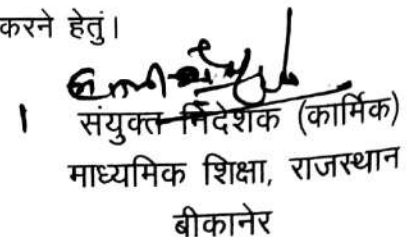 करने हेतुं।
संयुक्त निदेशक (कार्मिक)
माध्यमिक शिक्षा, राजस्थान
बीकानेर